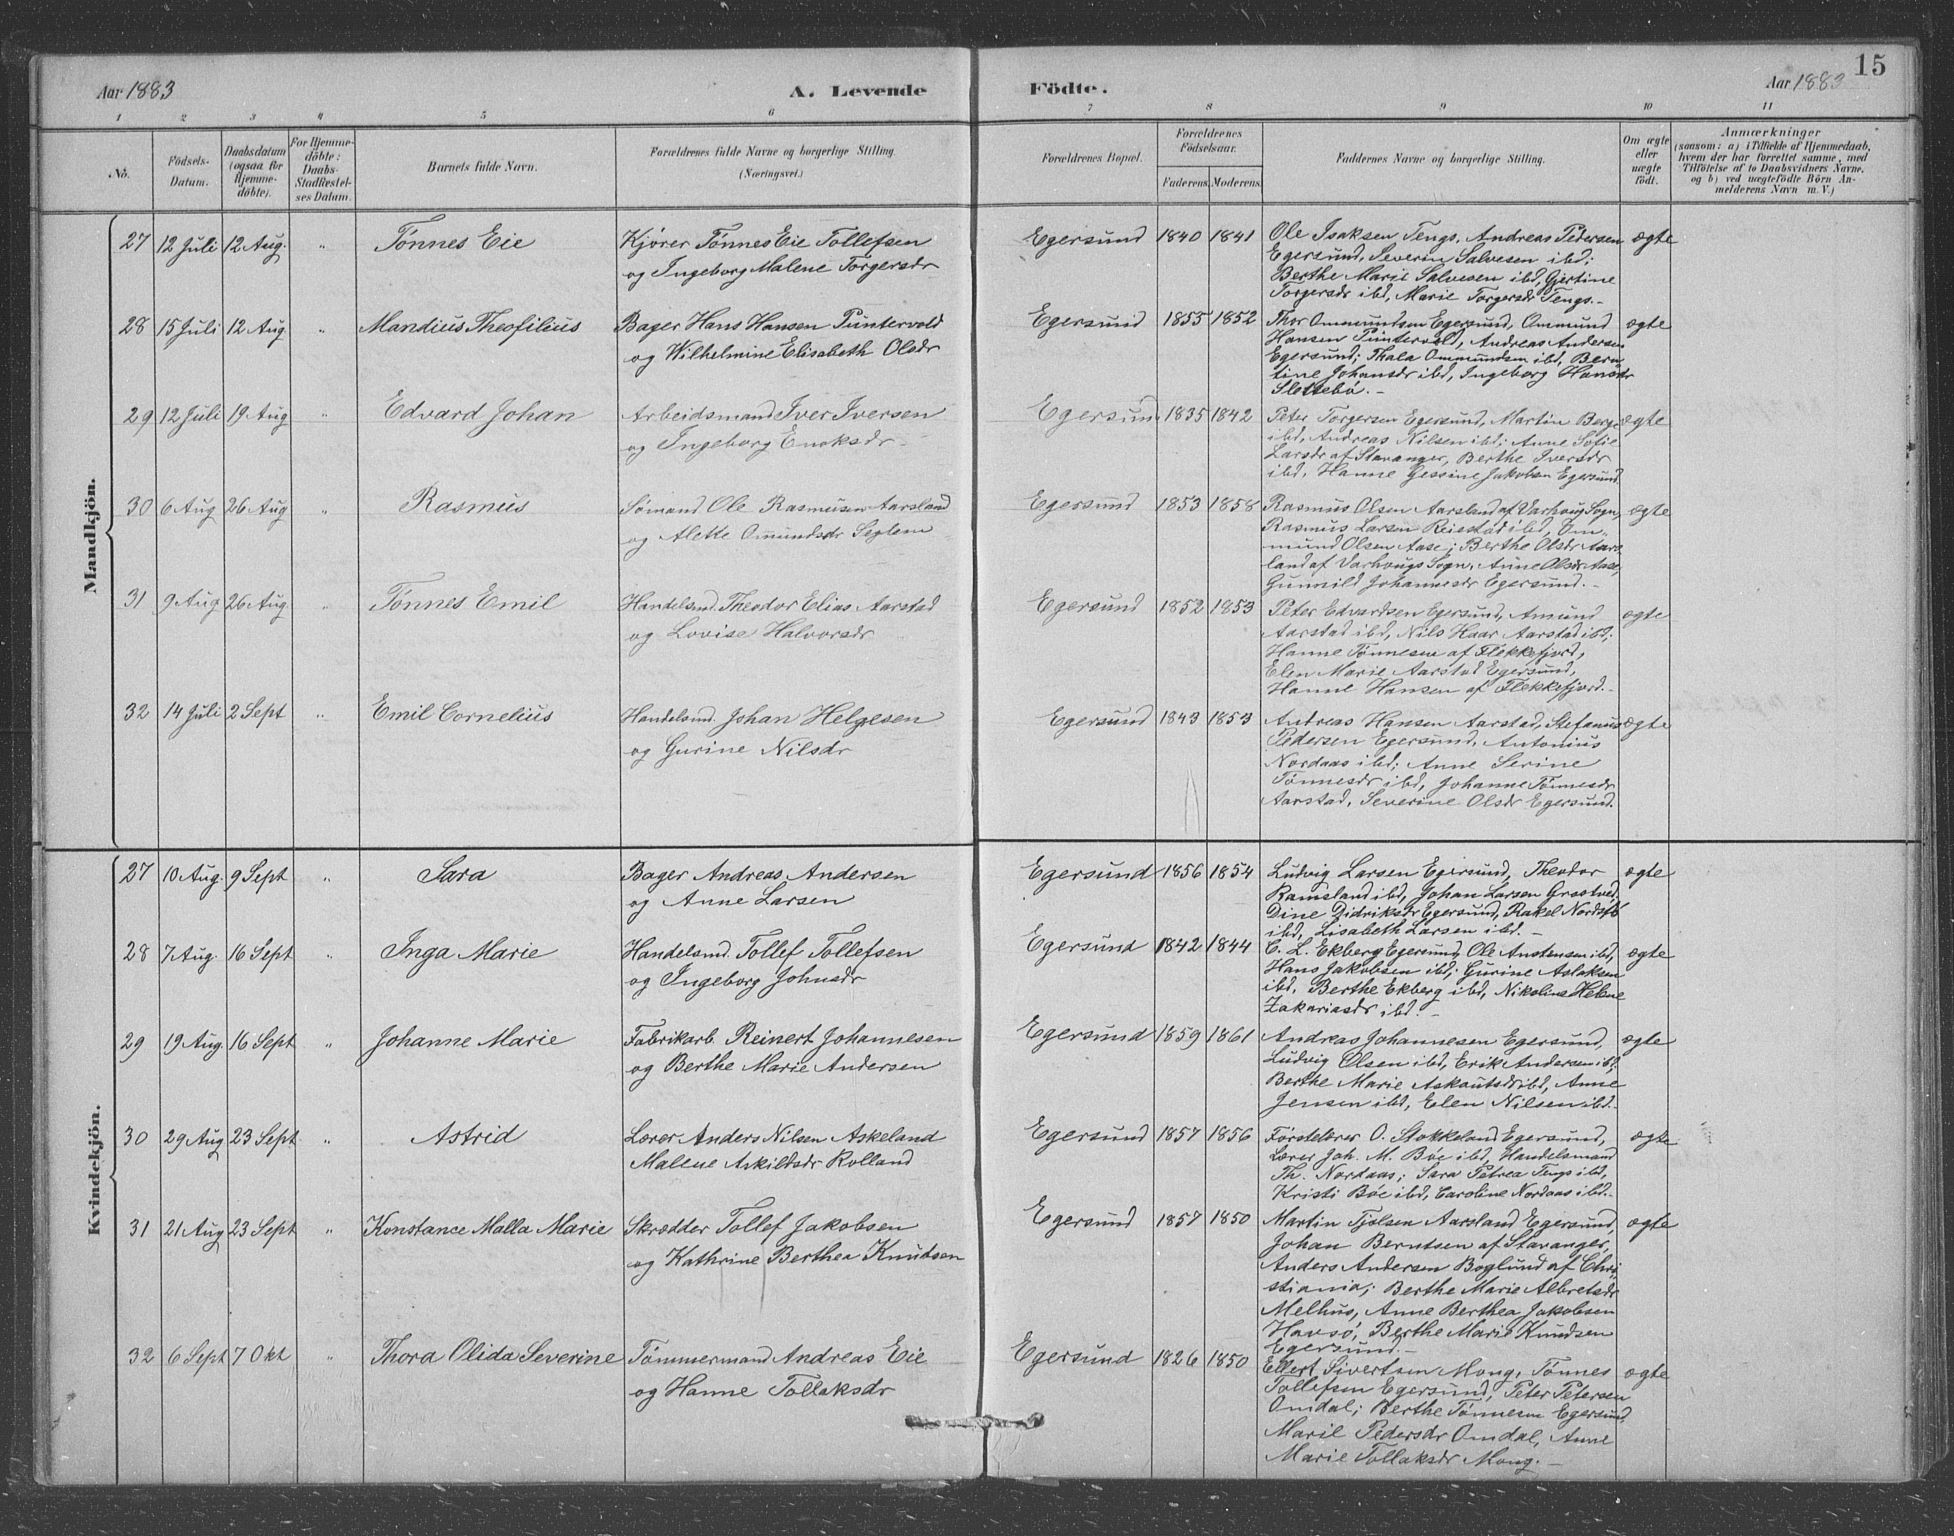 15
Aar 1883
A. Levende
Födte.
Aar 1883
1 2 3 4 5 6 7 8 9 10 11
No.
Födsels-
Datum.
Daabsdatum
(ogsaa för
Hjemme-
döbte).
For Hjemme-
döbte:
Daabs-
Stadfæstel-
ses Datum.
Barnets fulde Navn.
Forældrenes fulde Navne og borgerlige Stilling.
(Næringsvei.)
Forældrenes Bopæl.
Forældrenes
Födselsaar.
Faderens. Moderens.
Faddernes Navne og borgerlige Stilling.
Om ægte
eller
uægte
födt.
Anmærkninger
(saasom: a) i Tilfælde af Hjemmedaab,
hvem der har forrettet samme, med
Tilföielse af to Daabsvidners Navne,
og b) ved uægtefödte Börn An-
melderens Navn m. V.)
Mandkjön.
27 12 Juli 12 Aug. " Tønnes Eie
Kjører Tønnes Eie Tollefsen
og Ingeborg Malene Torgersdr
Egersund 1840 1841
Ole Isaksen Tengs, Andreas Pedersen
Egersund, Severin Salvesen ibd;
Berthe Marie Salvesen ibd, Gjertine
Torgersdr ibd, Marie Torgersdr Tengs.-
ægte
28 15 Juli 12 Aug " Mandius Theofilius
Bager Hans Hansen Puntervold
og Wilhelmine Elisabeth Olsdr
Egersund 1855 1852
Thor Ommundsen Egersund, Ommund
Hansen Puntervold, Andreas Andersen
Egersund; Thala Ommundsen ibd, Bern-
tine Johansdr ibd, Ingeborg Hansdr
Slettebø.-
ægte
29 12 Juli 19 Aug " Edvard Johan
Arbeidsmand Iver Iversen
og Ingeborg Enoksdr
Egersund 1835 1842
Peter Torgersen Egersund, Martin Berge
ibd, Andreas Nilsen ibd; Anne Sofie
Larsdr af Stavanger, Berthe Iversdr
ibd, Hanne Gessine Jakobsen Egersund
ægte
30 6 Aug 26 Aug " Rasmus
Sømand Ole Rasmusen Aarsland
og Alette Omundsdr Seglem
Egersund 1853 1858
Rasmus Olsen Aarsland af Varhoug Sogn,
Rasmus Larsen Reiestad ibd, Om-
mund Olsen Aase; Berthe Olsdr Aars-
land af Varhougs Sogn, Anne Olsdr Aase,
Gunnild Johannesdr Egersund.-
ægte
31 9 Aug 26 Aug " Tønnes Emil
Handelsmd. Theodor Elias Aarstad
og Lovise Halvorsdr
Egersund 1852 1853
Peter Edvardsen Egersund, Amund
Aarstad ibd, Nils Haar Aarstad ibd;
Hanne Tønnesen af Flekkefjord,
Elen Marie Aarstad Egersund,
Hanne Hansen af Flekkefjord.-
ægte
32 14 Juli 2 Sept " Emil Cornelius
Handelsmd. Johan Helgesen
og Gurine Nilsdr
Egersund 1843 1853
Andreas Hansen Aarstad, Stefanus
Pedersen Egersund, Antonius
Nordaas ibd; Anne Serine
Tønnesdr ibd, Johanne Tønnesdr
Aarstad, Severine Olsdr Egersund.
ægte
Kvindekjön.
27 10 Aug. 9 Sept " Sara
Bager Andreas Andersen
og Anne Larsen
Egersund 1856 1854
Ludvig Larsen Egersund, Theodor
Ramsland ibd, Johan Larsen
Dine Didriksdr Egersund, Rakel
ibd, Lisabeth Larsen ibd.-
ægte
28 7 Aug. 16 Sept " Inga Marie
Handelsmd. Tollef Tollefsen
og Ingeborg Johnsdr
Egersund 1842 1844
C. L. Ekberg Egersund, Ole Austensen ibd,
Hans Jakobsen ibd; Gurine Aslaksen
ibd, Berthe Ekberg ibd, Nikoline Helene
Zakariasdr ibd.-
ægte
29 19 Aug. 16 Sept " Johanne Marie
Fabrikarb. Reinert Johannesen
og Berthe Marie Andersen
Egersund 1859 1861
Andreas Johannesen Egersund,
Ludvig Olsen ibd, Erik Andersen ibd;
Berthe Marie ibd, Anne
Jensen ibd, Elen Nilsen ibd.
ægte
30 29 Aug 23 Sept " Astrid
Lærer Anders Nilsen Askeland
Malene Askildsdr Rolland
Egersund 1857 1856
Førstelærer O. Stokkeland Egersund,
Lærer Joh. M. Bøe ibd, Handelsmand
Th. Nordaas; Sara Petrea Tengs ibd,
Kristi Bøe ibd, Caroline Nordaas ibd.-
ægte
31 21 Aug 23 Sept " Konstance Malla Marie
Skrædder Tollef Jakobsen
og Kathrine Berthea Knudsen
Egersund 1857 1850
Martin Tjolsen Aarsland Egersund,
Johan Berntsen af Stavanger,
Anders Andersen Boglund af Chri-
stiania; Berthe Marie Albretsdr
Melhus, Anne Berthea Jakobsen
Havsø, Berthe Marie Knudsen
Egersund.-
ægte
32 6 Sept 7 Okt " Thora Olida Severine
Tømmermand Andreas Eie
og Hanne Tollaksdr
Egersund 1826 1850
Ellert Sivertsen Mong, Tønnes
Tollefsen Egersund, Peter Petersen
Omdal; Berthe Tønnesen Egersund,
Marie Pedersdr Omdal, Anne
Marie Tollaksdr Mong.-
ægte